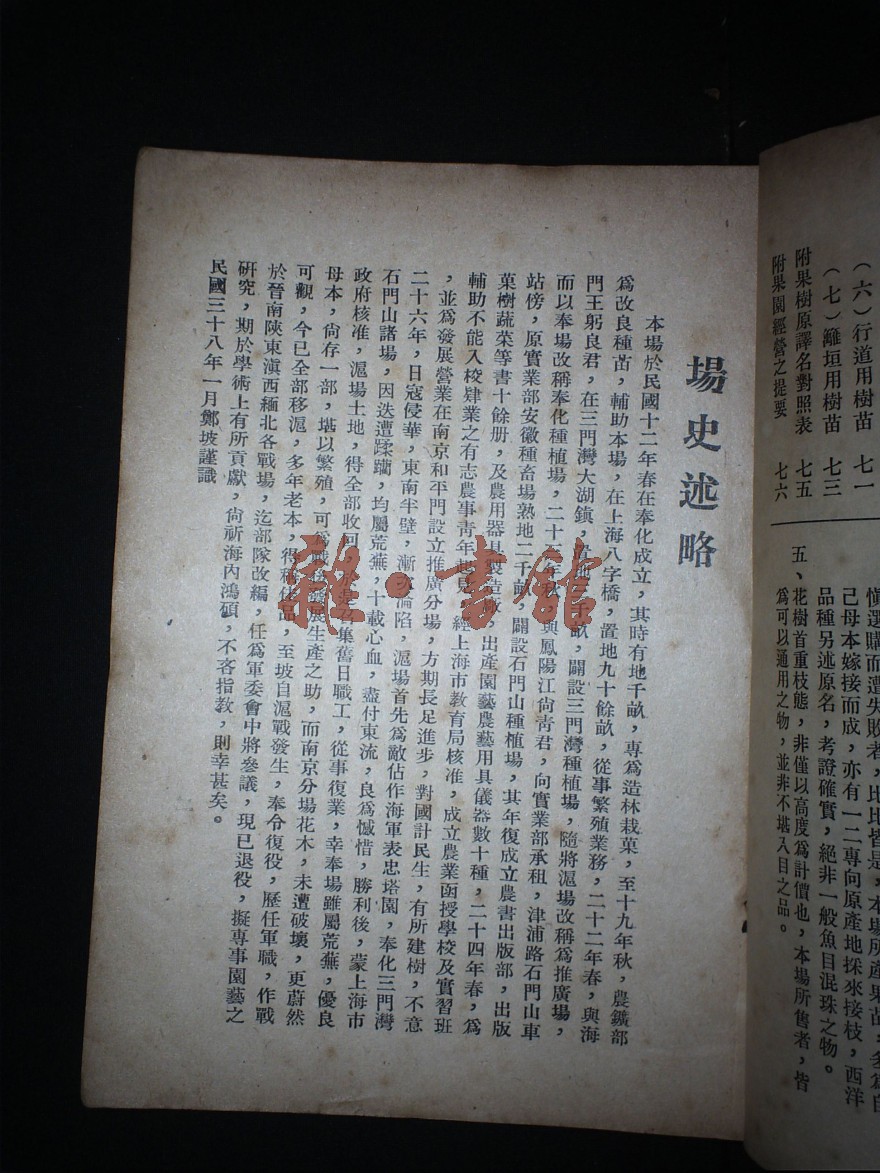 （六）行道用樹苗　七一
（七）籬垣用樹苗　七三
附果樹原譯名對照表　七五
附果園經營之提要　七六
慎選購而遭失敗者，比比皆是，本場所產果苗，多為自
己母本嫁接而成，亦有一二專向原產地採來接枝，西洋
品種另述原名，考證確實，絕非一般魚目混珠之物。
五、花樹首重枝態，非僅以高度為計價也，本場所售者，皆
為可以通用之物，並非不堪入目之品。
場史述略
本場於民國十二年春在奉化成立，其時有地千畝，專為造林栽菓，至十九年秋，農鑛部
為改良種苗，輔助本場，在上海八字橋，置地九十餘畝，從事繁殖業務，二十二年春，與海
門王躬良君，在三門灣大湖鎮，置地三千畝，闢設三門灣種植場，隨將滬場改稱為推廣場，
而以奉場改稱奉化種植場，二十三年秋，與鳳陽江尙靑君，向實業部承租，津浦路石門山車
站傍，原實業部安徽種畜場熟地二千畝，闢設石門山種植場，其年復成立農書出版部，出版
菓樹蔬菜等書十餘册，及農用器具製造，出產園藝農藝用具儀器數十種，二十四年春，為
輔助不能入校肄業之有志農事靑年起見，經上海市教育局核准，成立農業函授學校及實習班
，並為發展營業在南京和平門設立推廣分場，方期長足進步，對國計民生，有所建樹，不意
二十六年，日寇侵華，東南半壁，漸次淪陷，滬場首先為敵佔作海軍表忠塔園，奉化三門灣
石門山諸場，因迭遭蹂躪，均屬荒蕪，十載心血，盡付東流，良為憾惜，勝利後，蒙上海市
政府核准，滬場土地，得全部收回，於是召集舊日職工，從事復業，幸奉場雖屬荒蕪，優良
母本，尙存一部，堪以繁殖，可為戰後發展生產之助，而南京分場花木，未遭破壞，更蔚然
可觀，今已全部移滬，多年老本，得稱佳品，至坡自滬戰發生，奉令復役，歷任軍職，作戰
於晉南陝東滇西緬北各戰場，迄部隊改編，任為軍委會中將參議，現已退役，擬專事園藝之
研究，期於學術上有所貢獻，尙祈海內鴻碩，不吝指教，則幸甚矣。
民國三十八年一月鄭坡謹識
雜·書館